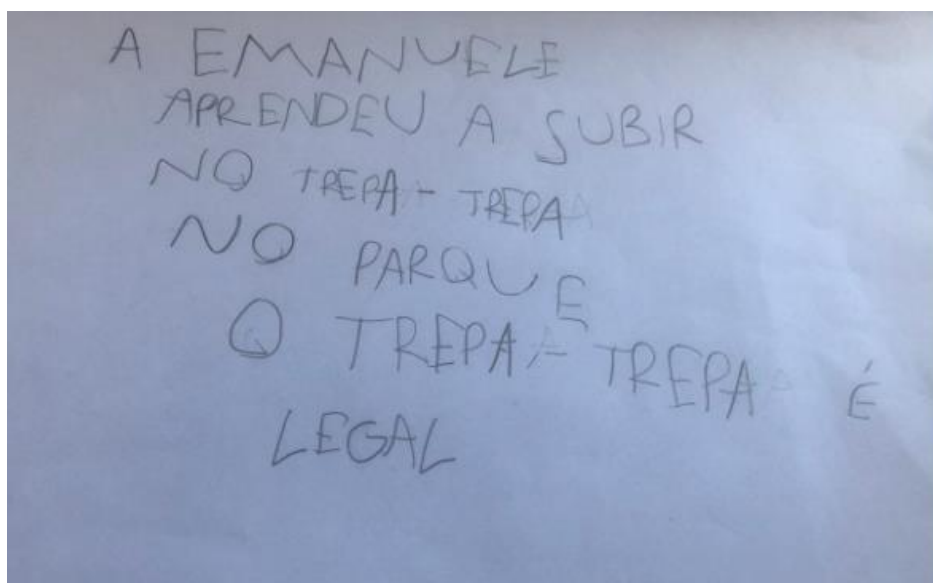 A EMANUELE
APRENDEU A SUBIR
NO TREPA-TREPA
NO PARQUE
O TREPA-TREPA É
LEGAL